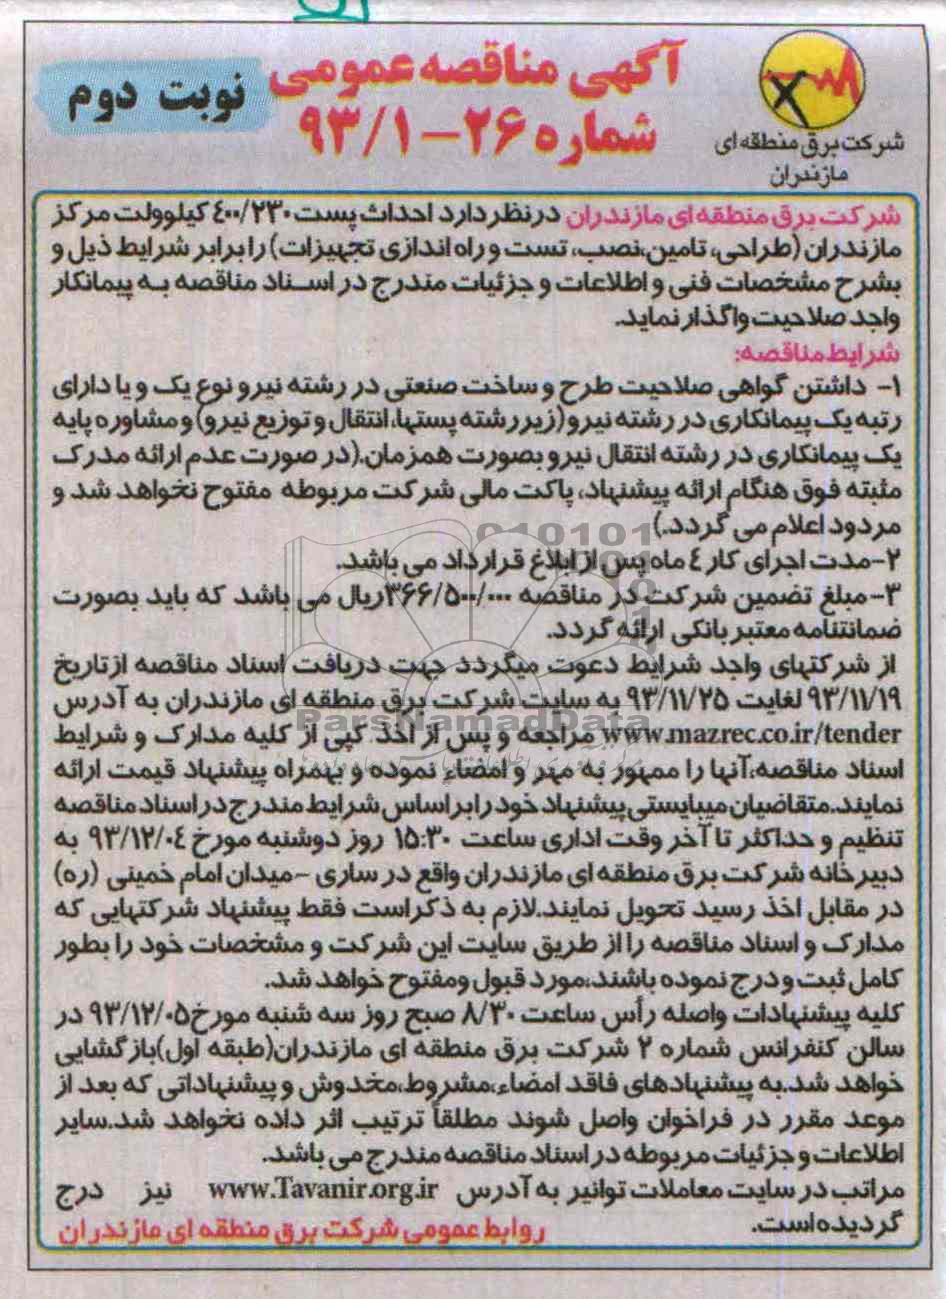 آگهی مناقصه عمومی
شماره ۲۶-۹۳/۱
نوبت دوم
شرکت برق منطقه ای
مازندران
شرکت برق منطقه ای مازندران درنظر دارد احداث پست ۴۰۰/۲۳۰ کیلوولت مرکز
مازندران (طراحی، تامین،نصب، تست و راه اندازی تجهیزات) را برابر شرایط ذیل و
بشرح مشخصات فنی و اطلاعات و جزئیات مندرج در اسناد مناقصه به پیمانکار
واجد صلاحیت واگذار نماید.
شرایط مناقصه:
۱- داشتن گواهی صلاحیت طرح و ساخت صنعتی در رشته نیرو نوع یک و یا دارای
رتبه یک پیمانکاری در رشته نیرو (زیر رشته پستها، انتقال و توزیع نیرو) و مشاوره پایه
یک پیمانکاری در رشته انتقال نیرو بصورت همزمان.(در صورت عدم ارائه مدرک
مثبته فوق هنگام ارائه پیشنهاد، پاکت مالی شرکت مربوطه مفتوح نخواهد شد و
مردود اعلام می گردد.)
۲-مدت اجرای کار ۴ ماه پس از ابلاغ قرارداد می باشد.
۳-مبلغ تضمین شرکت در مناقصه ۳۶۶/۵۰۰/۰۰۰ریال می باشد که باید بصورت
ضمانتنامه معتبر بانکی ارائه گردد.
از شرکتهای واجد شرایط دعوت میگردد جهت دریافت اسناد مناقصه از تاریخ
۹۳/۱۱/۱۹ لغایت ۹۳/۱۱/۲۵ به سایت شرکت برق منطقه ای مازندران به آدرس
www.mazrec.co.ir/tender مراجعه و پس از اخذ کپی از کلیه مدارک و شرایط
اسناد مناقصه،آنها را ممهور به مهر و امضاء نموده و بهمراه پیشنهاد قیمت ارائه
نمایند.متقاضیان میبایستی پیشنهاد خود را براساس شرایط مندرج در اسناد مناقصه
تنظیم و حداکثر تا آخر وقت اداری ساعت ۱۵:۳۰ روز دوشنبه مورخ ۹۳/۱۲/۰۴ به
دبیرخانه شرکت برق منطقه ای مازندران واقع در ساری -میدان امام خمینی (ره)
در مقابل اخذ رسید تحویل نمایند.لازم به ذکر است فقط پیشنهاد شرکتهایی که
مدارک و اسناد مناقصه را از طریق سایت این شرکت و مشخصات خود را بطور
کامل ثبت و درج نموده باشند،مورد قبول ومفتوح خواهد شد.
کلیه پیشنهادات واصله رأس ساعت ۸/۳۰ صبح روز سه شنبه مورخ۹۳/۱۲/۰۵ در
سالن کنفرانس شماره ۲ شرکت برق منطقه ای مازندران(طبقه اول)بازگشایی
خواهد شد.به پیشنهادهای فاقد امضاء،مشروط،مخدوش و پیشنهاداتی که بعد از
موعد مقرر در فراخوان واصل شوند مطلقاً ترتیب اثر داده نخواهد شد.سایر
اطلاعات و جزئیات مربوطه در اسناد مناقصه مندرج می باشد.
مراتب در سایت معاملات توانیر به آدرس www.Tavanir.org.ir نیز درج
گردیده است.
روابط عمومی شرکت برق منطقه ای مازندران
ParsNamadData